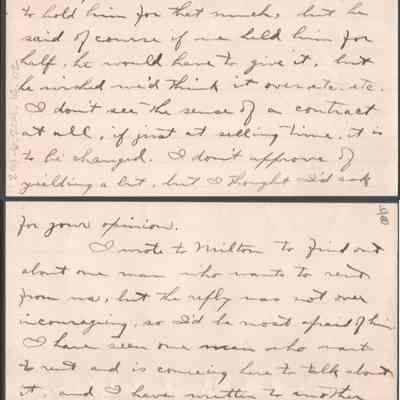 to hold him for that much, but he
said of course if we held him for
half, he would have to give it, but
he wished we'd think it over etc. etc.
I don't see the sense of a contract
at all, if just at selling time, it is
to be changed. I don't approve of
yielding a bit, but I thought I'd ask
for your opinion.
I wrote to Milton to find out
about one man who wants to rent
from us, but the reply was not over
incouraging, so I'd be most afraid of him
I have seen one man who wants
to rent and is comeing here to talk about
it, and I have written to another